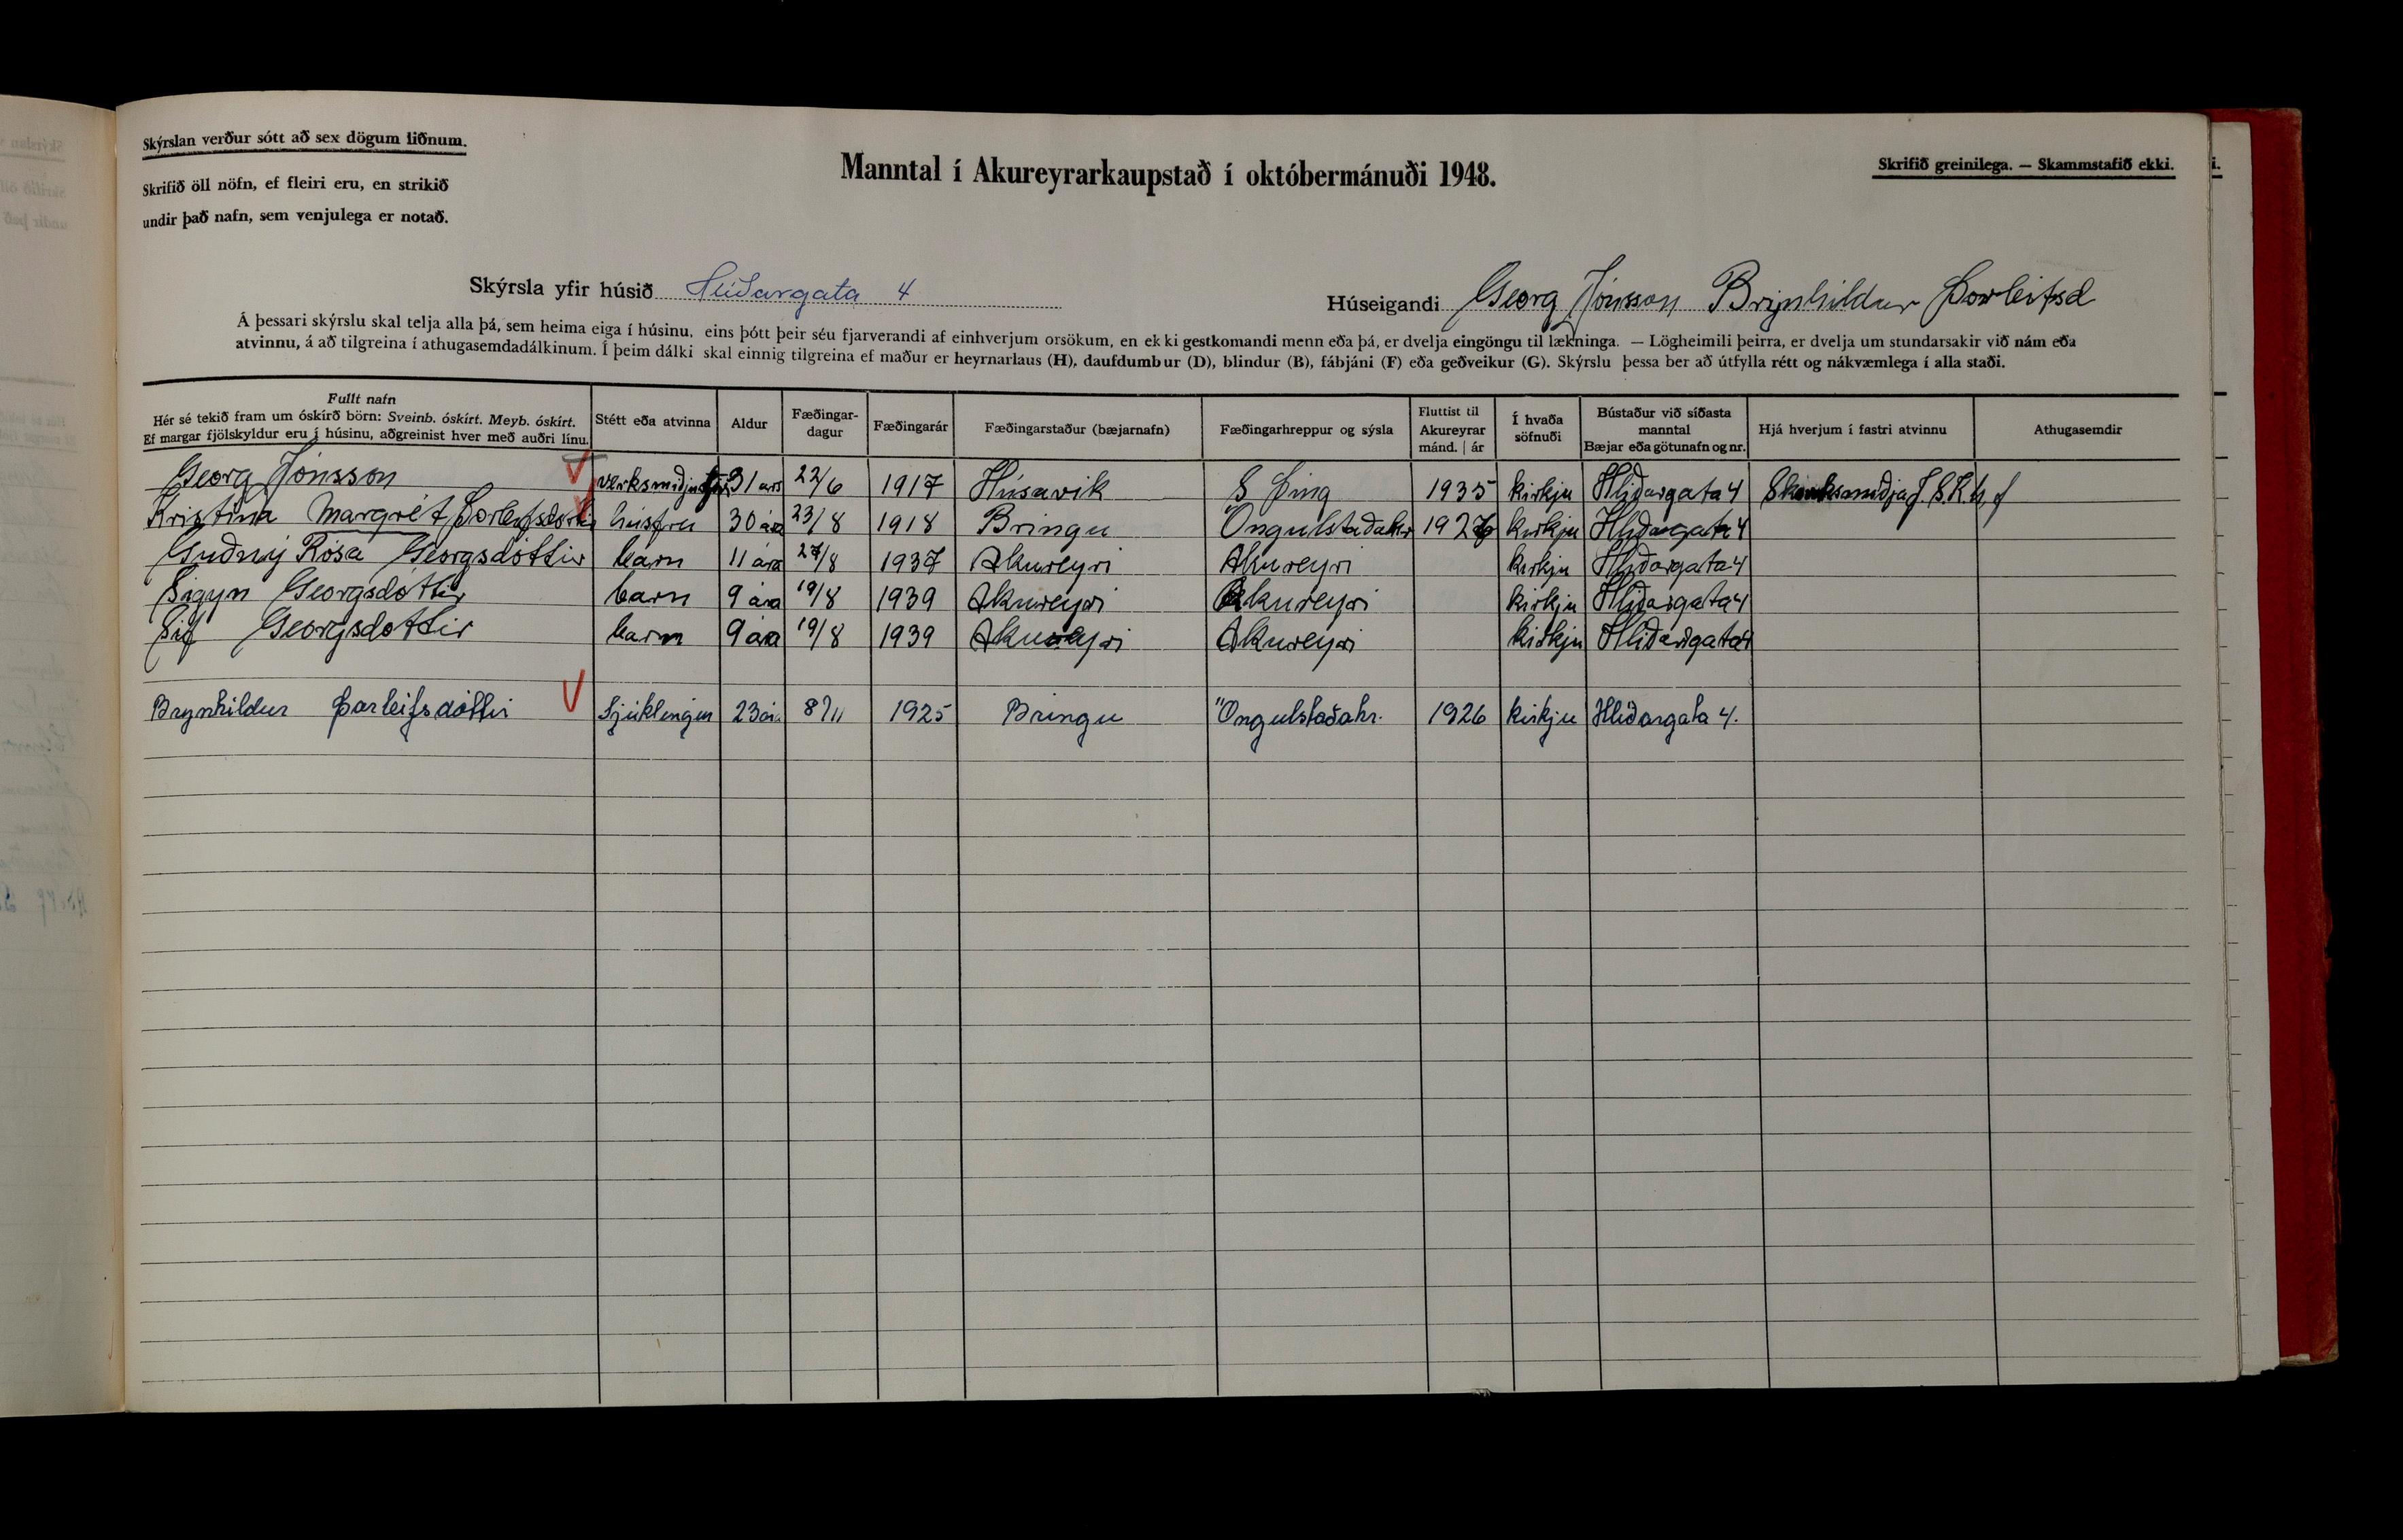 Skýrslan verður sótt að sex dögum liðnum.
Skrifið öll nöfn, ef fleiri eru, en strikið
undir það nafn, sem venjulega er notað.
Manntal í Akureyrarkaupstað í októbermánuði 1948.
Skrifið greinilega. — Skammstafið ekki.
Skýrsla yfir húsið Hlíðargata 4
Húseigandi Georg Jónsson Brynhildur Þorleifsd
Á þessari skýrslu skal telja alla þá, sem heima eiga í húsinu, eins þótt þeir séu fjarverandi af einhverjum orsökum, en ekki gestkomandi menn eða þá, er dvelja eingöngu til lækninga. — Lögheimili þeirra, er dvelja um stundarsakir við nám eða
atvinnu, á að tilgreina í athugasemdadálkinum. Í þeim dálki skal einnig tilgreina ef maður er heyrnarlaus (H), daufdumbur (D), blindur (B), fábjáni (F) eða geðveikur (G). Skýrslu þessa ber að útfylla rétt og nákvæmlega í alla staði.
Fullt nafn
Hér sé tekið fram um óskírð börn: Sveinb. óskírt. Meyb. óskírt.
Ef margar fjölskyldur eru í húsinu, aðgreinist hver með auðri línu.
Stétt eða atvinna
Aldur
Fæðingar-
dagur
Fæðingarár
Fæðingarstaður (bæjarnafn)
Fæðingarhreppur og sýsla
Fluttist til
Akureyrar
mánd. | ár
Í hvaða
söfnuði
Bústaður við síðasta
manntal
Bæjar eða götunafn og nr.
Hjá hverjum í fastri atvinnu
Athugasemdir
Georg Jónsson 31 árs 22/6 1917 Húsavik S Þing 1935 kirkju Hlíðargata 4 h f
Kristína Margrét Þorleifsdóttir húsfru 30 ára 23/8 1918 Bringu Öngulstaðahr 1926 kirkju Hlíðargata 4
Guðný Rósa Georgsdóttir barn 11 ára 27/8 1937 Akureyri Akureyri kirkju Hlíðargata 4
Sigyn Georgsdóttir barn 9 ára 19/8 1939 Akureyri Akureyri kirkju Hlíðargata 4
Sif Georgsdottir barn 9 ára 19/8 1939 Akureyri Akureyri kirkju Hlíðargata 4
Brynhildur Þorleifsdóttir Sjúklingur 23 ára 8/11 1925 Bringu Öngulstaðahr. 1926 kirkju Hlíðargata 4.